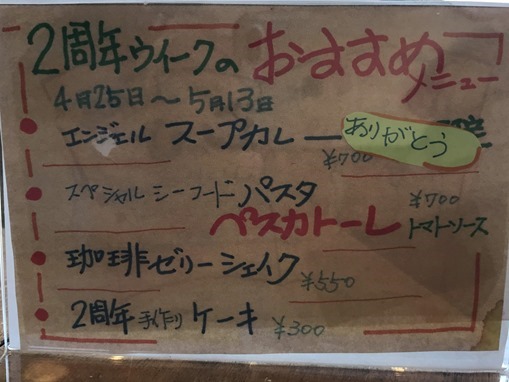 2周年ウィークのおすすめメニュー
4月25日～5月13日
エンジェル スープカレー ありがとう
¥700
スペシャル シーフードパスタ ¥700
ペスカトーレ トマトソース
珈琲ゼリーシェイク ¥550
2周年手作りケーキ ¥300